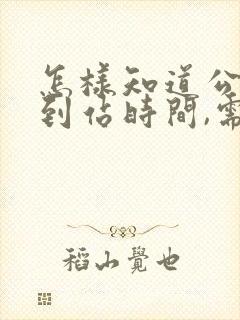 怎樣知道公
到佔時間,需
稻山覺也